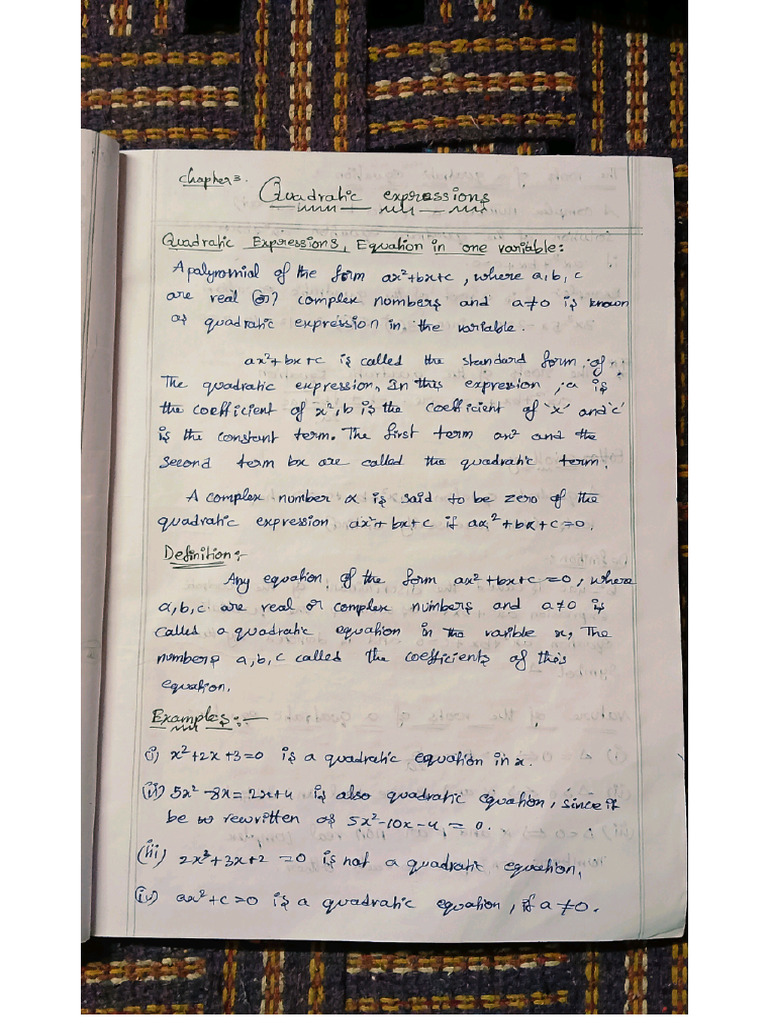 Chapter 3.
Quadratic expressions
Quadratic Expressions, Equation in one variable:
A palynomial of the form ax²+bx+c, where a, b, c
are real (or) complex numbers and a≠0 is known
as quadratic expression in the variable.
ax²+bx+c is called the standard form of
The quadratic expression, In this expression, a is
the coefficient of x², b is the coefficient of 'x' and 'c'
is the constant term. The first term ax² and the
second term bx are called the quadratic term.
A complex number α is said to be zero of the
quadratic expression ax²+bx+c if aα²+bα+c=0.
Definition:-
Any equation of the form ax²+bx+c=0, where
a, b, c are real or complex numbers and a≠0 is
called a quadratic equation in the varible x, The
numbers a, b, c called the coefficients of this
equation.
Examples:-
i) x²+2x+3=0 is a quadratic equation in x.
(ii) 5x²-8x=2x+4 is also quadratic equation, since it
be rewritten as 5x²-10x-4=0.
(iii) 2x³+3x+2=0 is not a quadratic equation.
iv) ax²+c=0 is a quadratic equation, if a≠0.